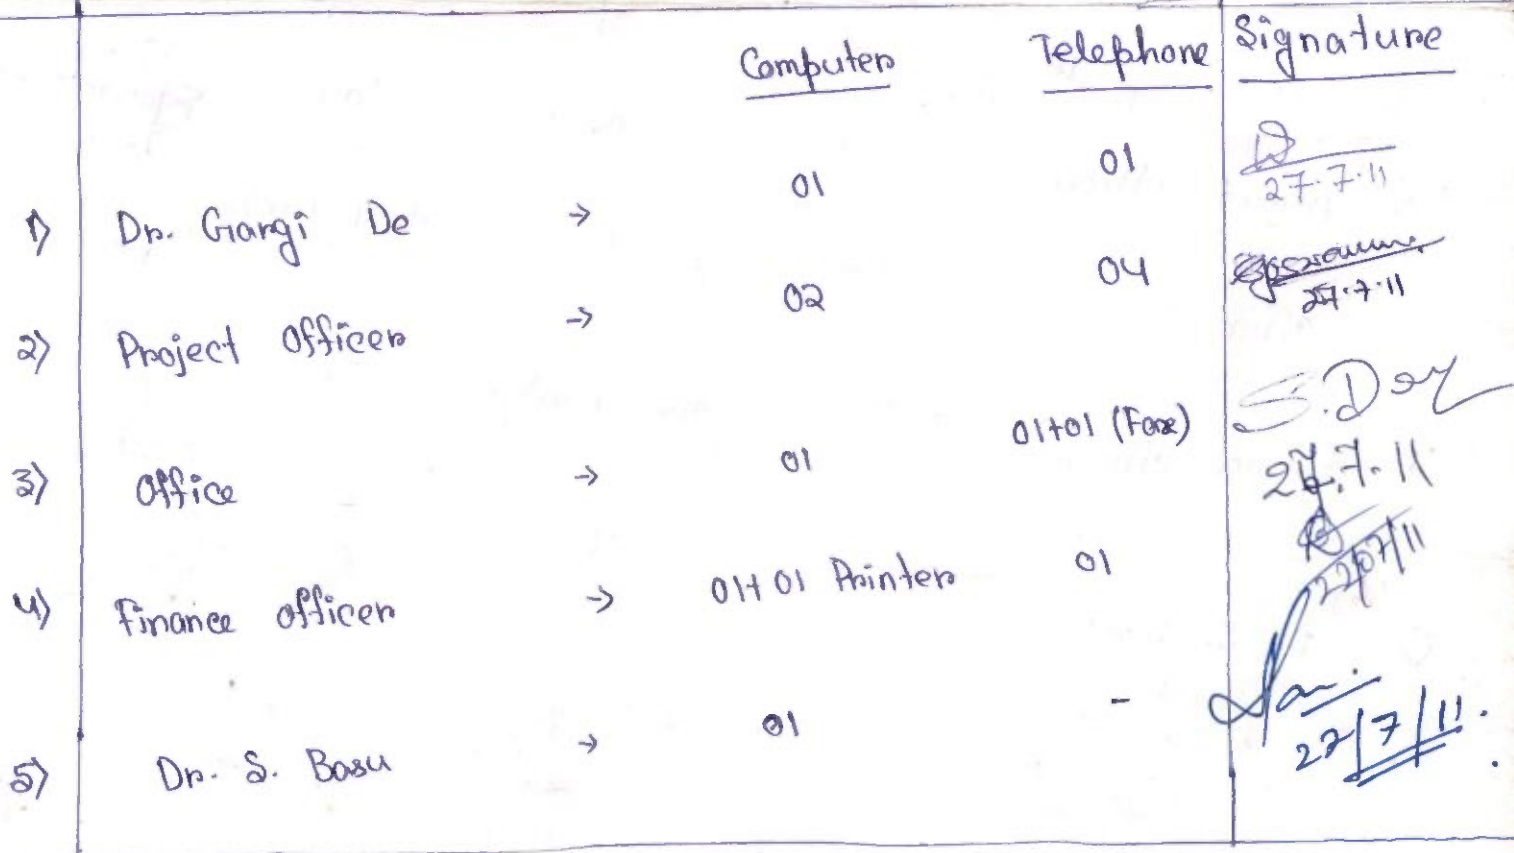 Computer Telephone Signature
1) Dr. Gargi De → 01 01
27.7.11
2) Project Officer → 02 04
27.7.11
3) Office → 01 01+01 (Fax) S. Dey
27.7.11
4) Finance officer → 01+01 Printer 01
22/07/11
5) Dr. S. Basu → 01 -
27/7/11.